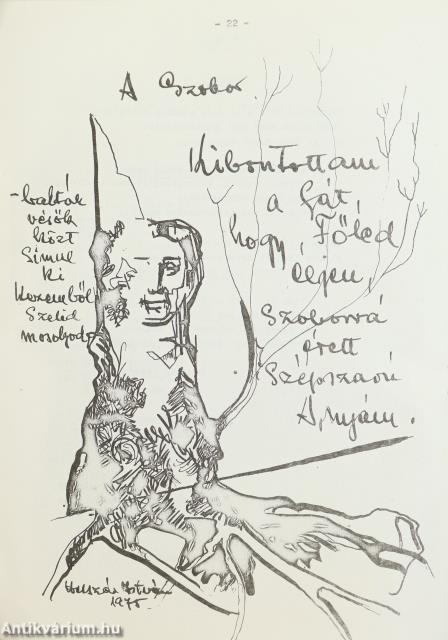 - 22 -
A Szobor
Kibontottam
a Fát,
hogy Tőled
éljen,
Szoborrá
érett
Szépszavú
Anyám.
-balták
vésők
közt
Simul
ki
Kezemből
Szelíd
mosolyod-
István
1975
Antikvárium.hu